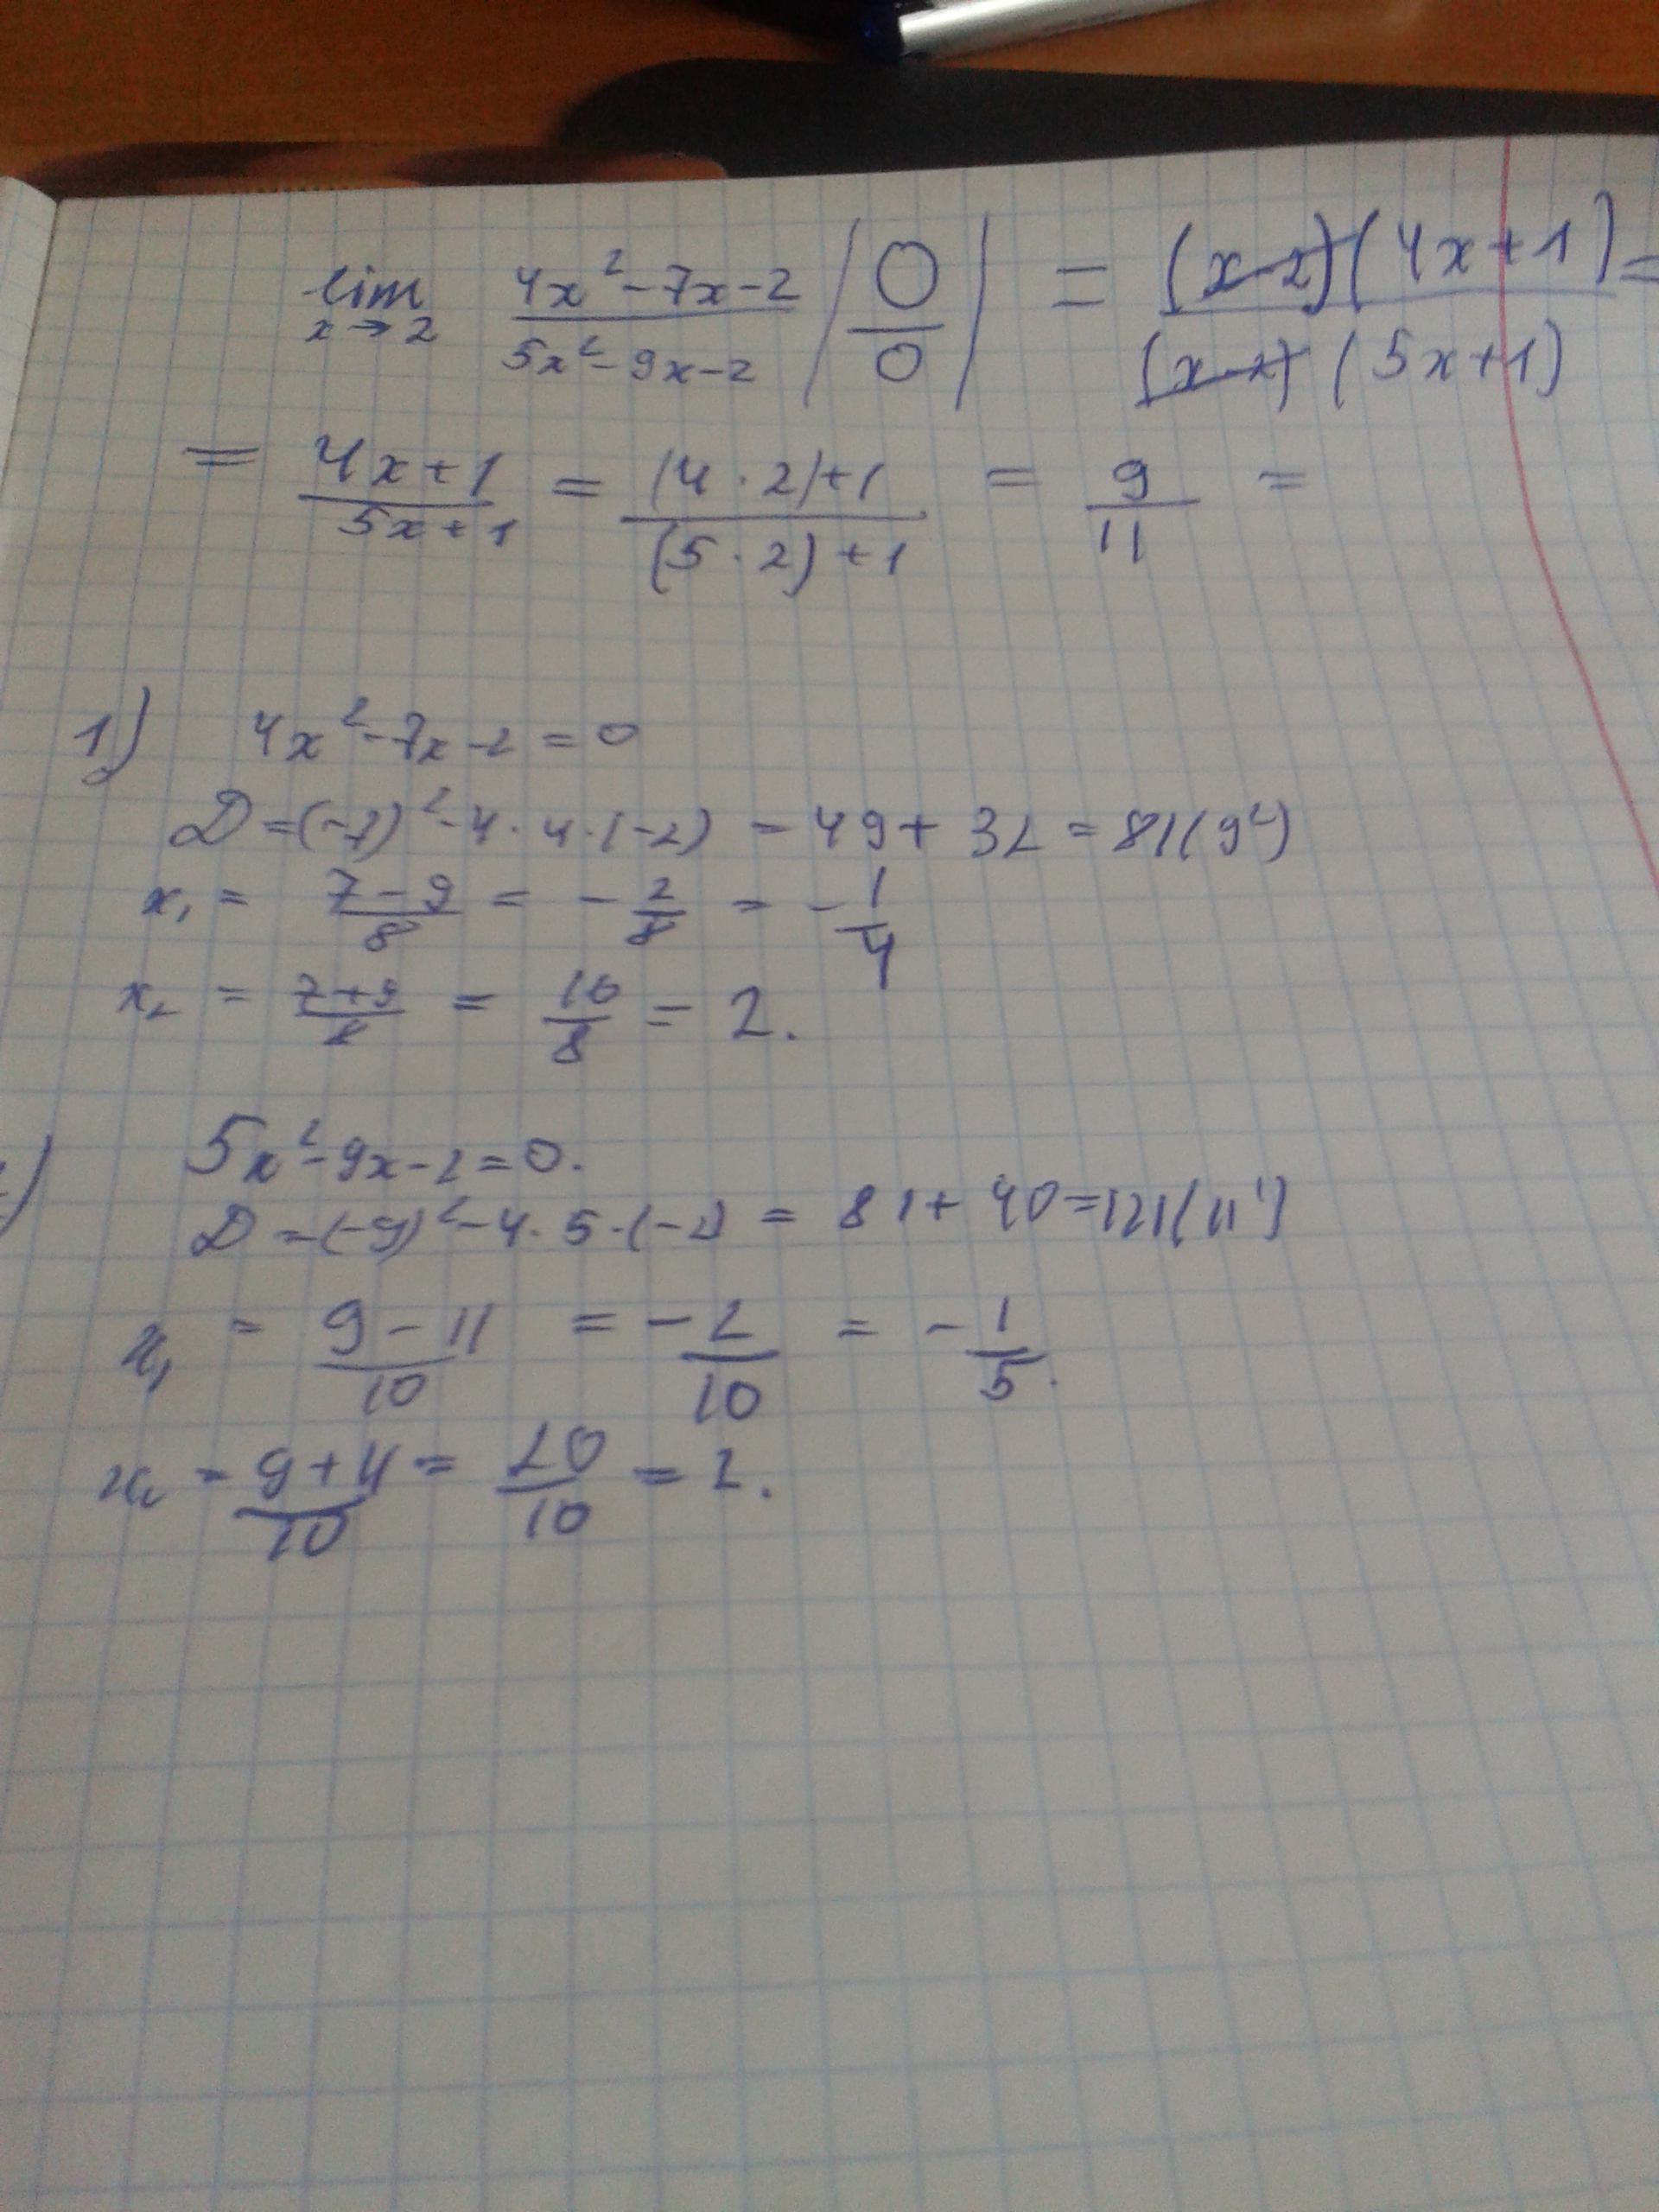 lim x→2 (4x²-7x-2)/(5x²-9x-2) |0/0| = ((x-2)(4x+1))/((x-2)(5x+1)) =
= (4x+1)/(5x+1) = ((4·2)+1)/((5·2)+1) = 9/11 =
1) 4x²-7x-2=0
D=(-7)²-4·4·(-2) = 49+32=81(9²)
x₁ = (7-9)/8 = -2/8 = -1/4
x₂ = (7+9)/8 = 16/8 = 2.
2) 5x²-9x-2=0.
D=(-9)²-4·5·(-2) = 81+40=121(11²)
x₁ = (9-11)/10 = -2/10 = -1/5.
x₂ = (9+11)/10 = 20/10 = 2.